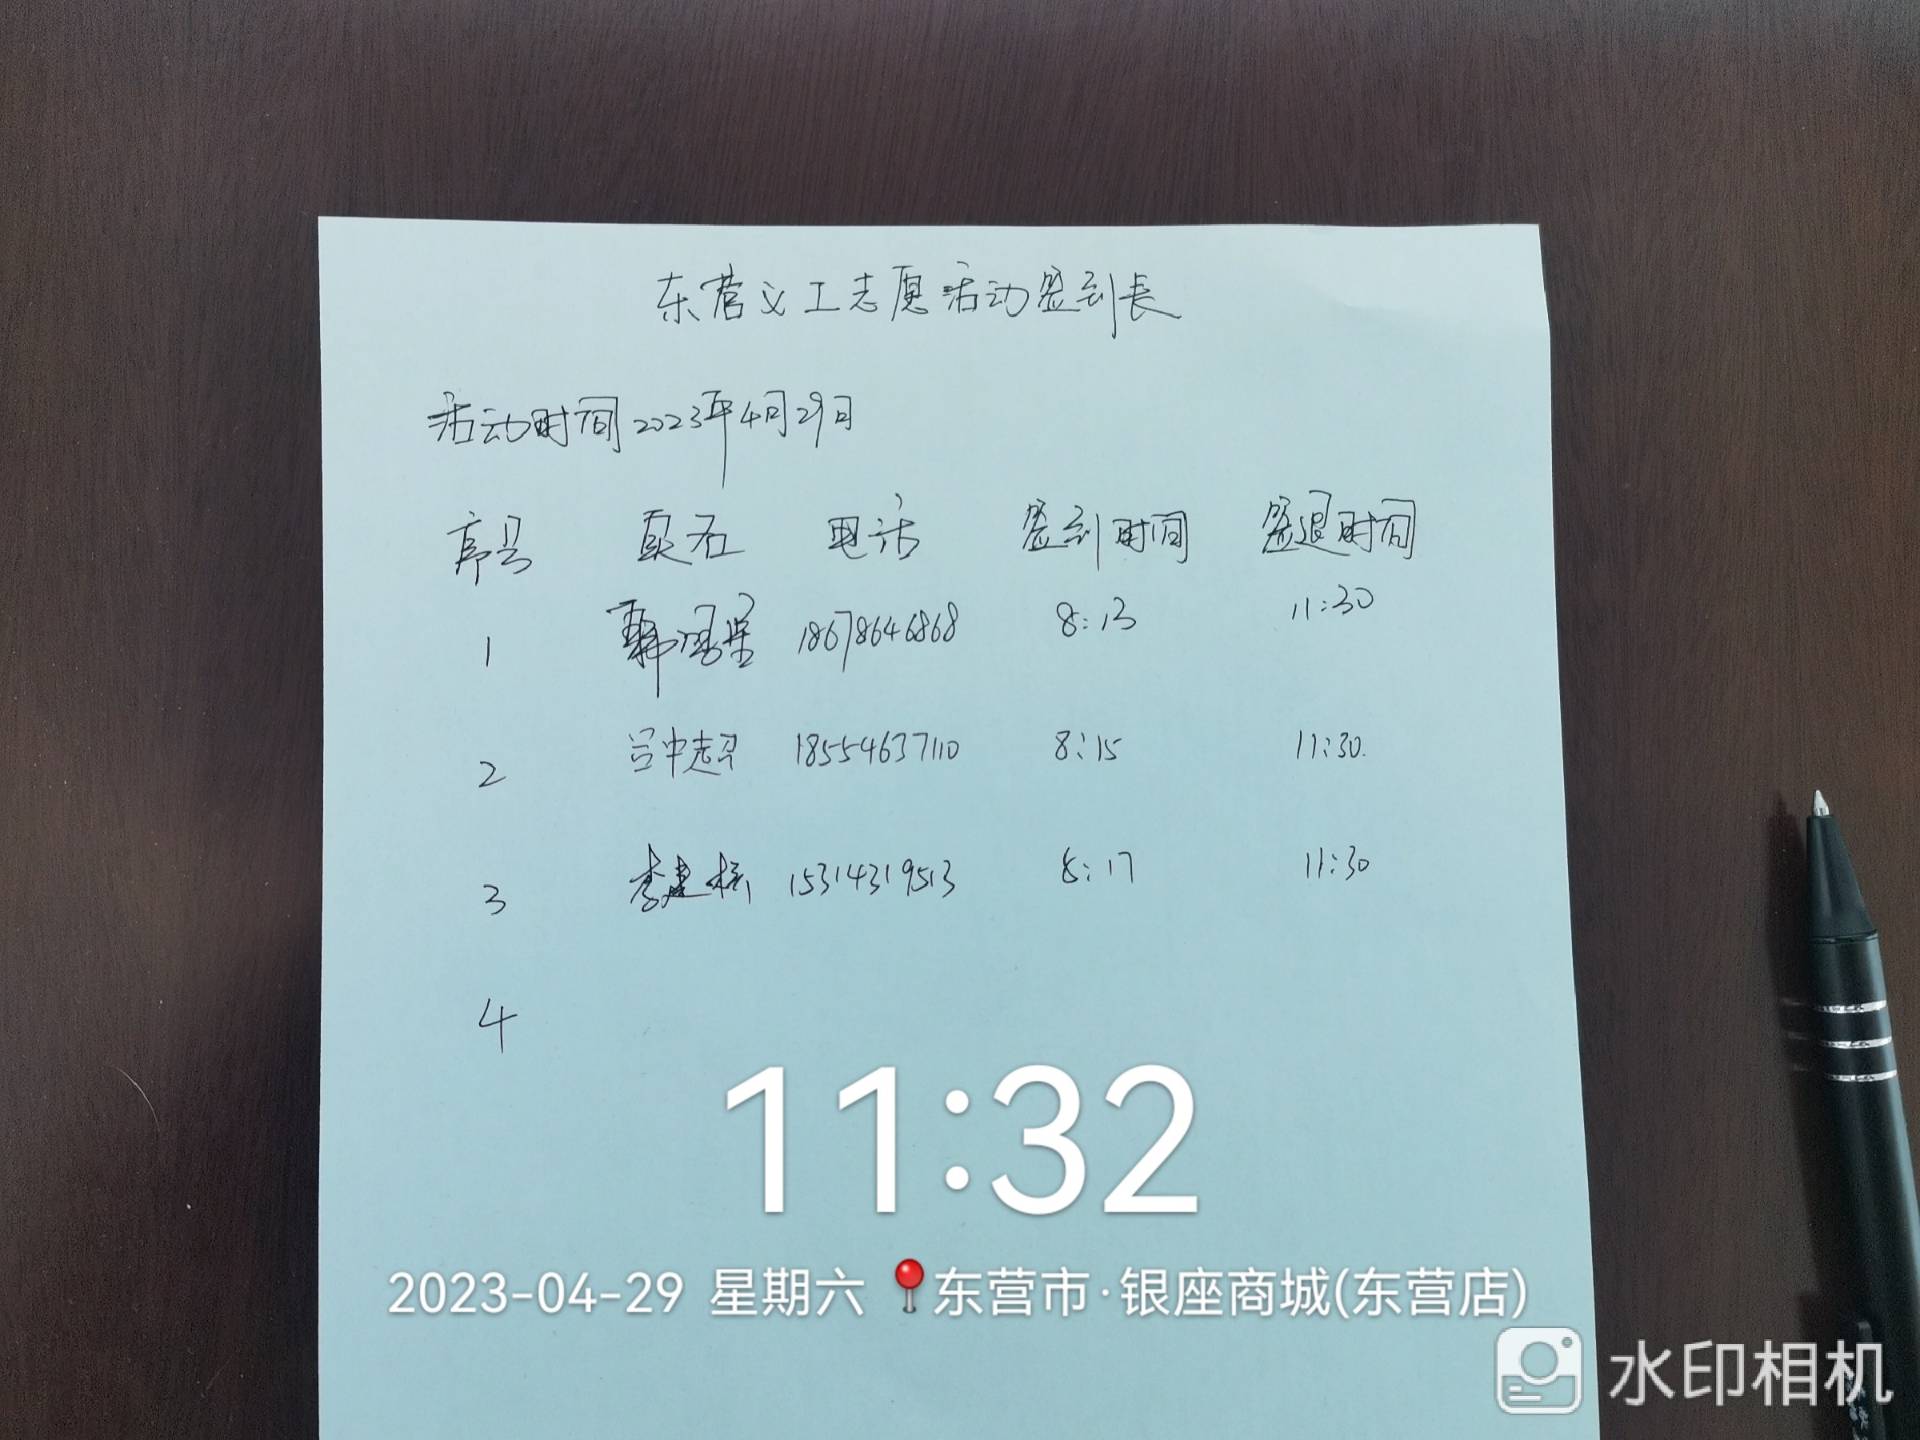 东营义工志愿活动签到表
活动时间2023年4月29日
序号 真名 电话 签到时间 签退时间
1 18678646868 8:13 11:30
2 吕中超 18554637110 8:15 11:30.
3 李建 15314319513 8:17 11:30
4
11:32
2023-04-29 星期六 东营市·银座商城(东营店)
水印相机